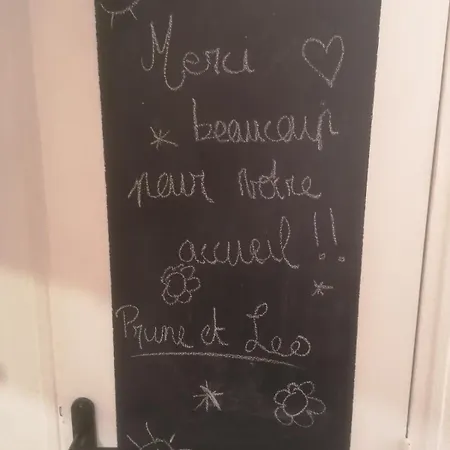 Merci
beaucoup
pour votre
accueil !!
Prune et Leo